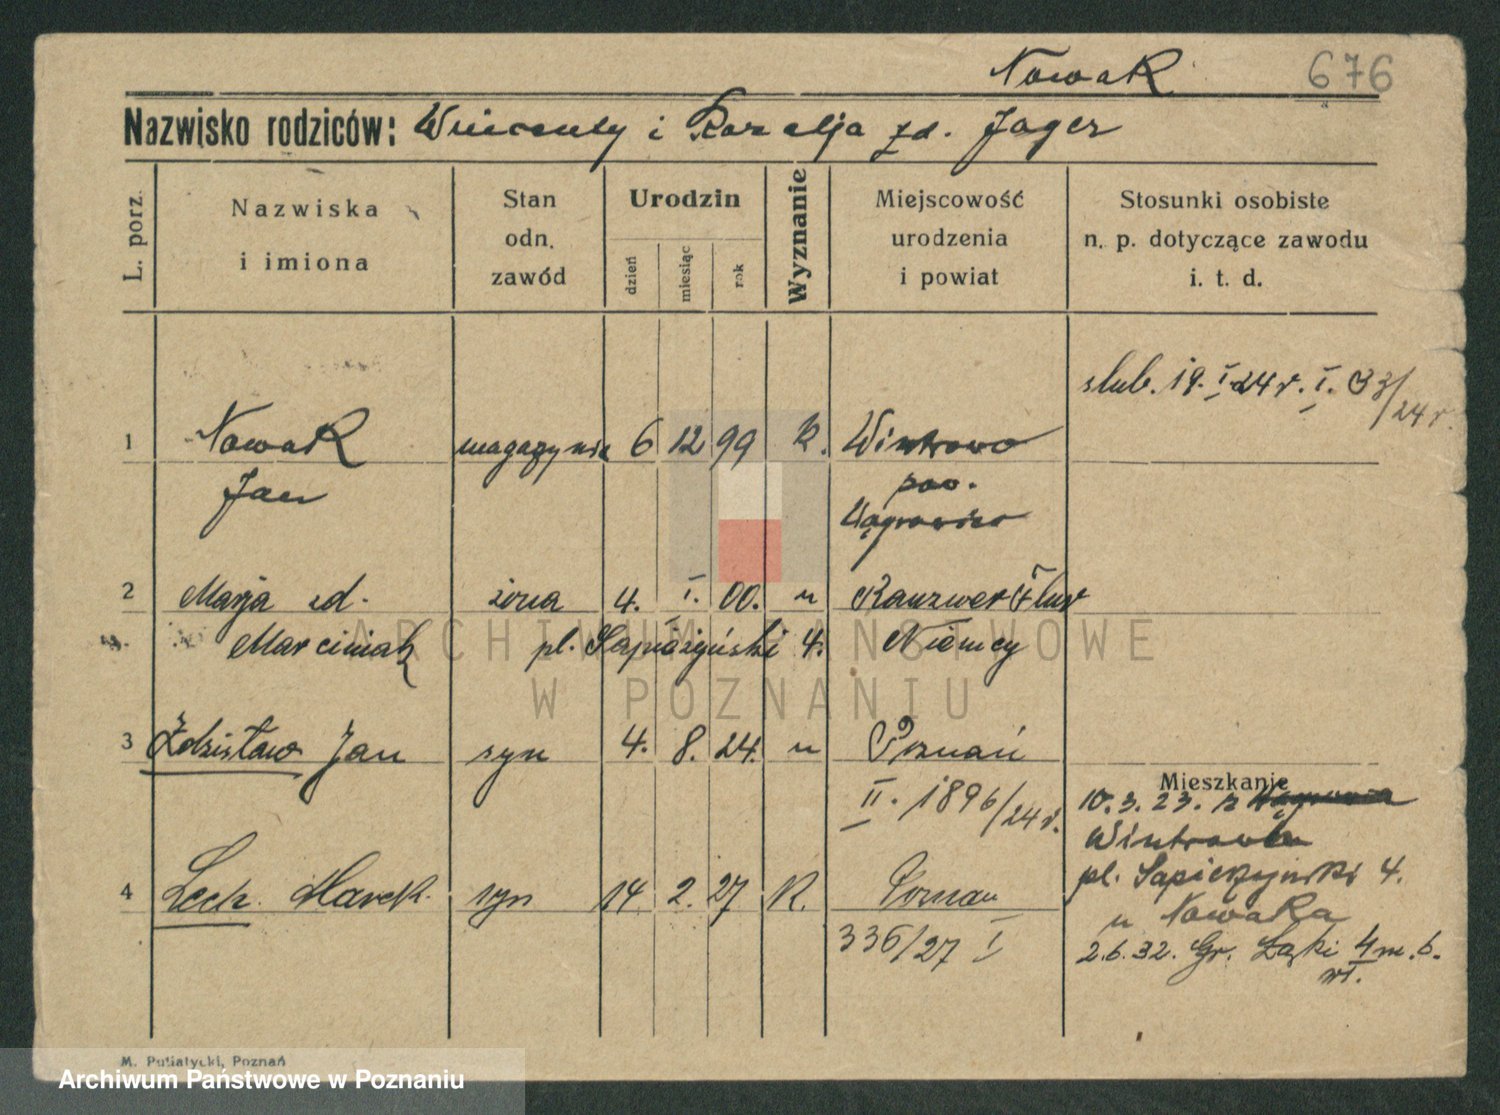 Nowak 676
Nazwisko rodziców: Wincenty i Rozalja zd. Jager
L. porz.
Nazwiska
i imiona
Stan
odn.
zawód
Urodzin
dzień
miesiąc
rok
Wyznanie
Miejscowość
urodzenia
i powiat
Stosunki osobiste
n. p. dotyczące zawodu
i. t. d.
ślub. 19. I 24 r. I. 33/24 r.
1 Nowak magazynie 6 12 99 k.
Jan pow.
2 Marja zd. żona 4. I. 00. " Flur
Marciniak pl. Sapieżyński 4. Niemcy
3 Zdzisław Jan syn 4. 8. 24. " Poznań
Mieszkanie
II. 1896/24 r. 10. 3. 23. z
pl. Sapieżyński 4.
4 Lech Marek. syn 14 2. 27 K. Poznań
u Nowaka
336/27 I 2.6.32. Gr. Łąki 4 m. 6.
wł.
M. Putiatycki, Poznań
Archiwum Państwowe w Poznaniu
ARCHIWUM PAŃSTWOWE
W POZNANIU